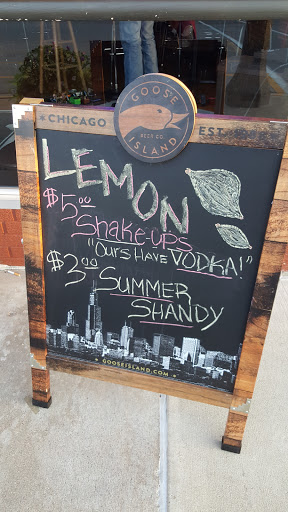 GOOSE
BEER CO.
ISLAND
CHICAGO
LEMON
$5.00 Shake-ups
"Ours Have VODKA!"
$3.00 SUMMER
SHANDY
GOOSEISLAND.COM